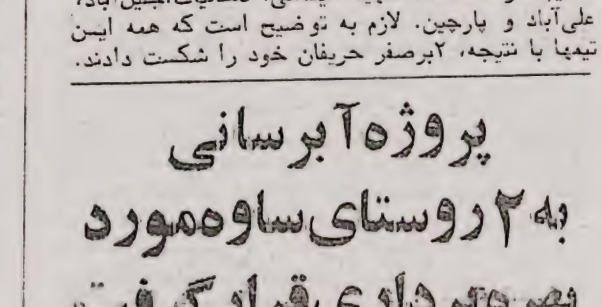 علی‌آباد و پارچین. لازم به توضیح است که همه ایسن
تیمها با نتیجه، ۲برصفر حریفان خود را شکست دادند.
پروژه آبرسانی
به ۲ روستای ساوه مورد
بهره‌برداری قرار گرفت